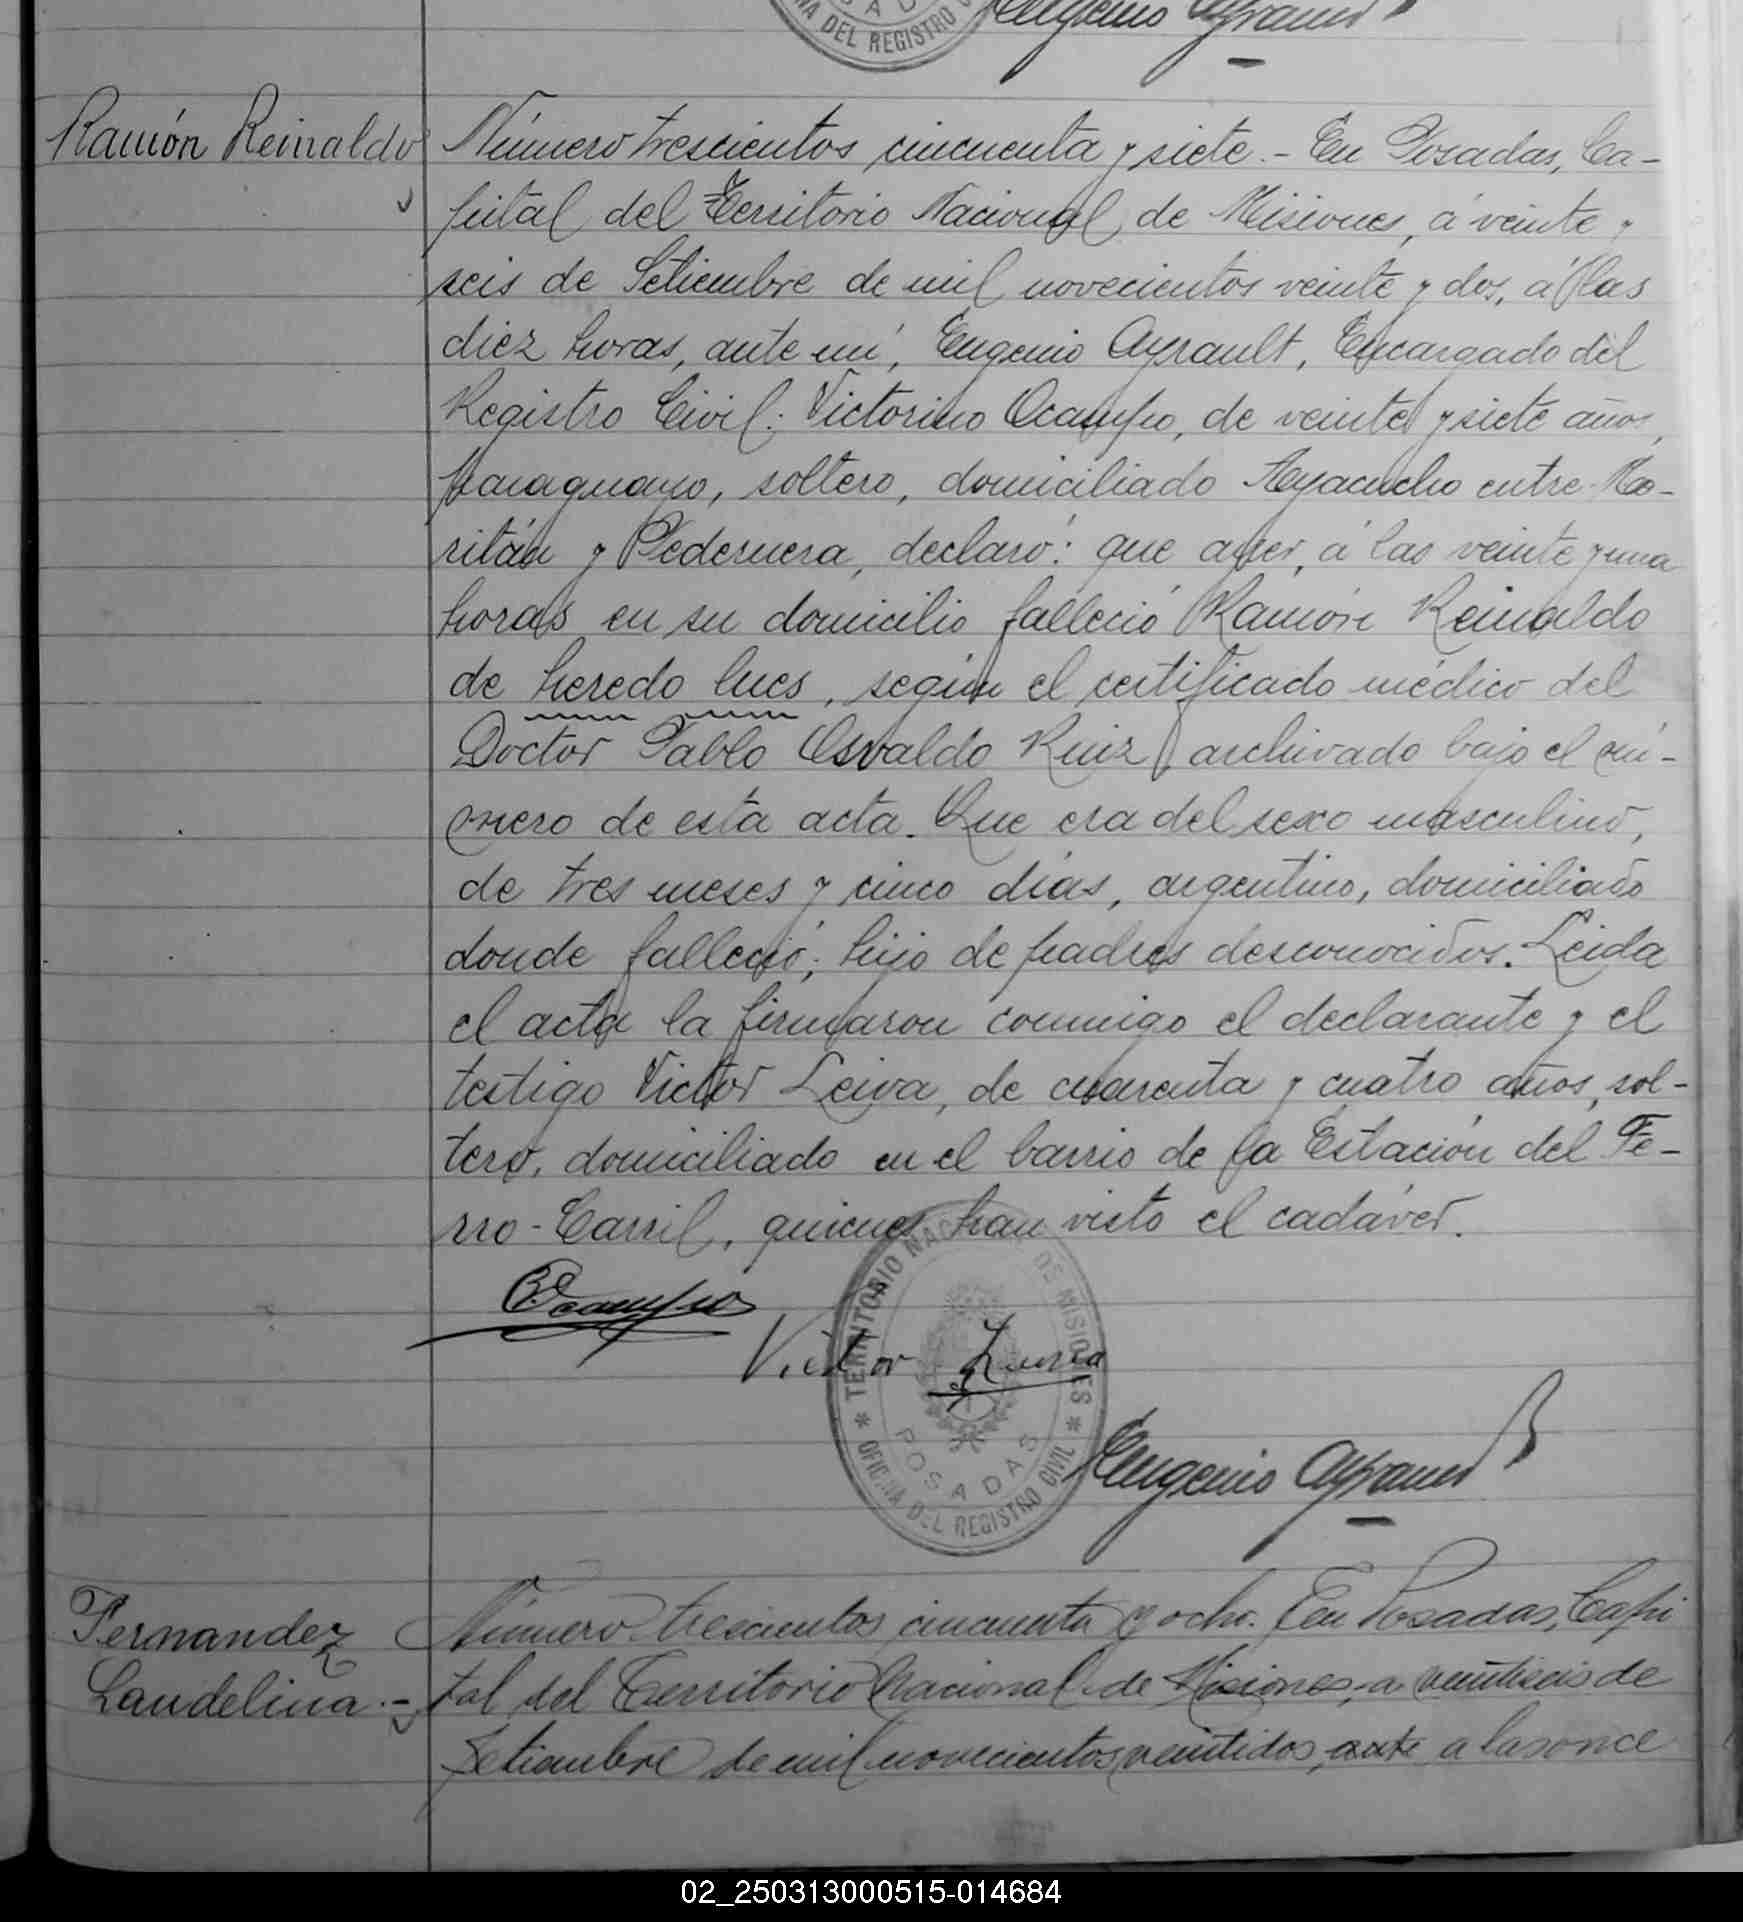 DEL REGISTRO
Eugenio Ayrault
Ramón Reinaldo
Número trescientos cincuenta y siete.- En Posadas, Ca-
pital del Territorio Nacional de Misiones, á veinte y
seis de Setiembre de mil novecientos veinte y dos, á las
diez horas, ante mí, Eugenio Ayrault, Encargado del
Registro Civil: Victorino Ocampo, de veinte y siete años,
paraguayo, soltero, domiciliado Ayacucho entre Ra-
ritán y Pedernera, declaró: que ayer, á las veinte y una
horas en su domicilio falleció Ramón Reinaldo
de heredo lues, según el certificado médico del
Doctor Pablo Osvaldo Ruiz archivado bajo el nú-
mero de esta acta. Que era del sexo masculino,
de tres meses y cinco días, argentino, domiciliado
donde falleció; hijo de padres desconocidos. Leida
el acta la firmaron conmigo el declarante y el
testigo Victor Leiva, de cuarenta y cuatro años, sol-
tero, domiciliado en el barrio de la Estación del Fe-
rro-Carril, quienes han visto el cadáver.
Ocampo
Victor
TERRITORIO NACIONAL DE MISIONES
POSADAS
OFICINA DEL REGISTRO CIVIL
Eugenio Ayrault
Fernandez
Landelina.-
Número trescientos cincuenta y ocho. En Posadas, Capi
tal del Territorio Nacional de Misiones, a veintiseis de
Setiembre de mil novecientos veintidos, ante a las once
02_250313000515-014684